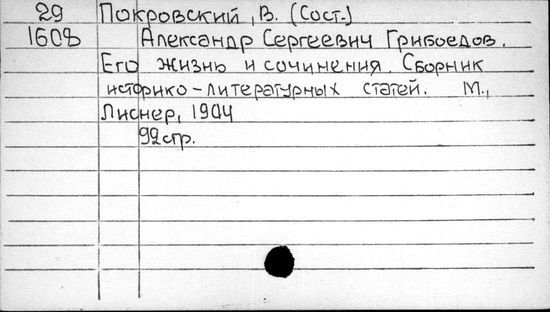 29 Покровский, В. (Сост.)
1608 Александр Сергеевич Грибоедов.
Его жизнь и сочинения. Сборник
историко-литературных статей. М.,
Лиснер, 1904
92 стр.